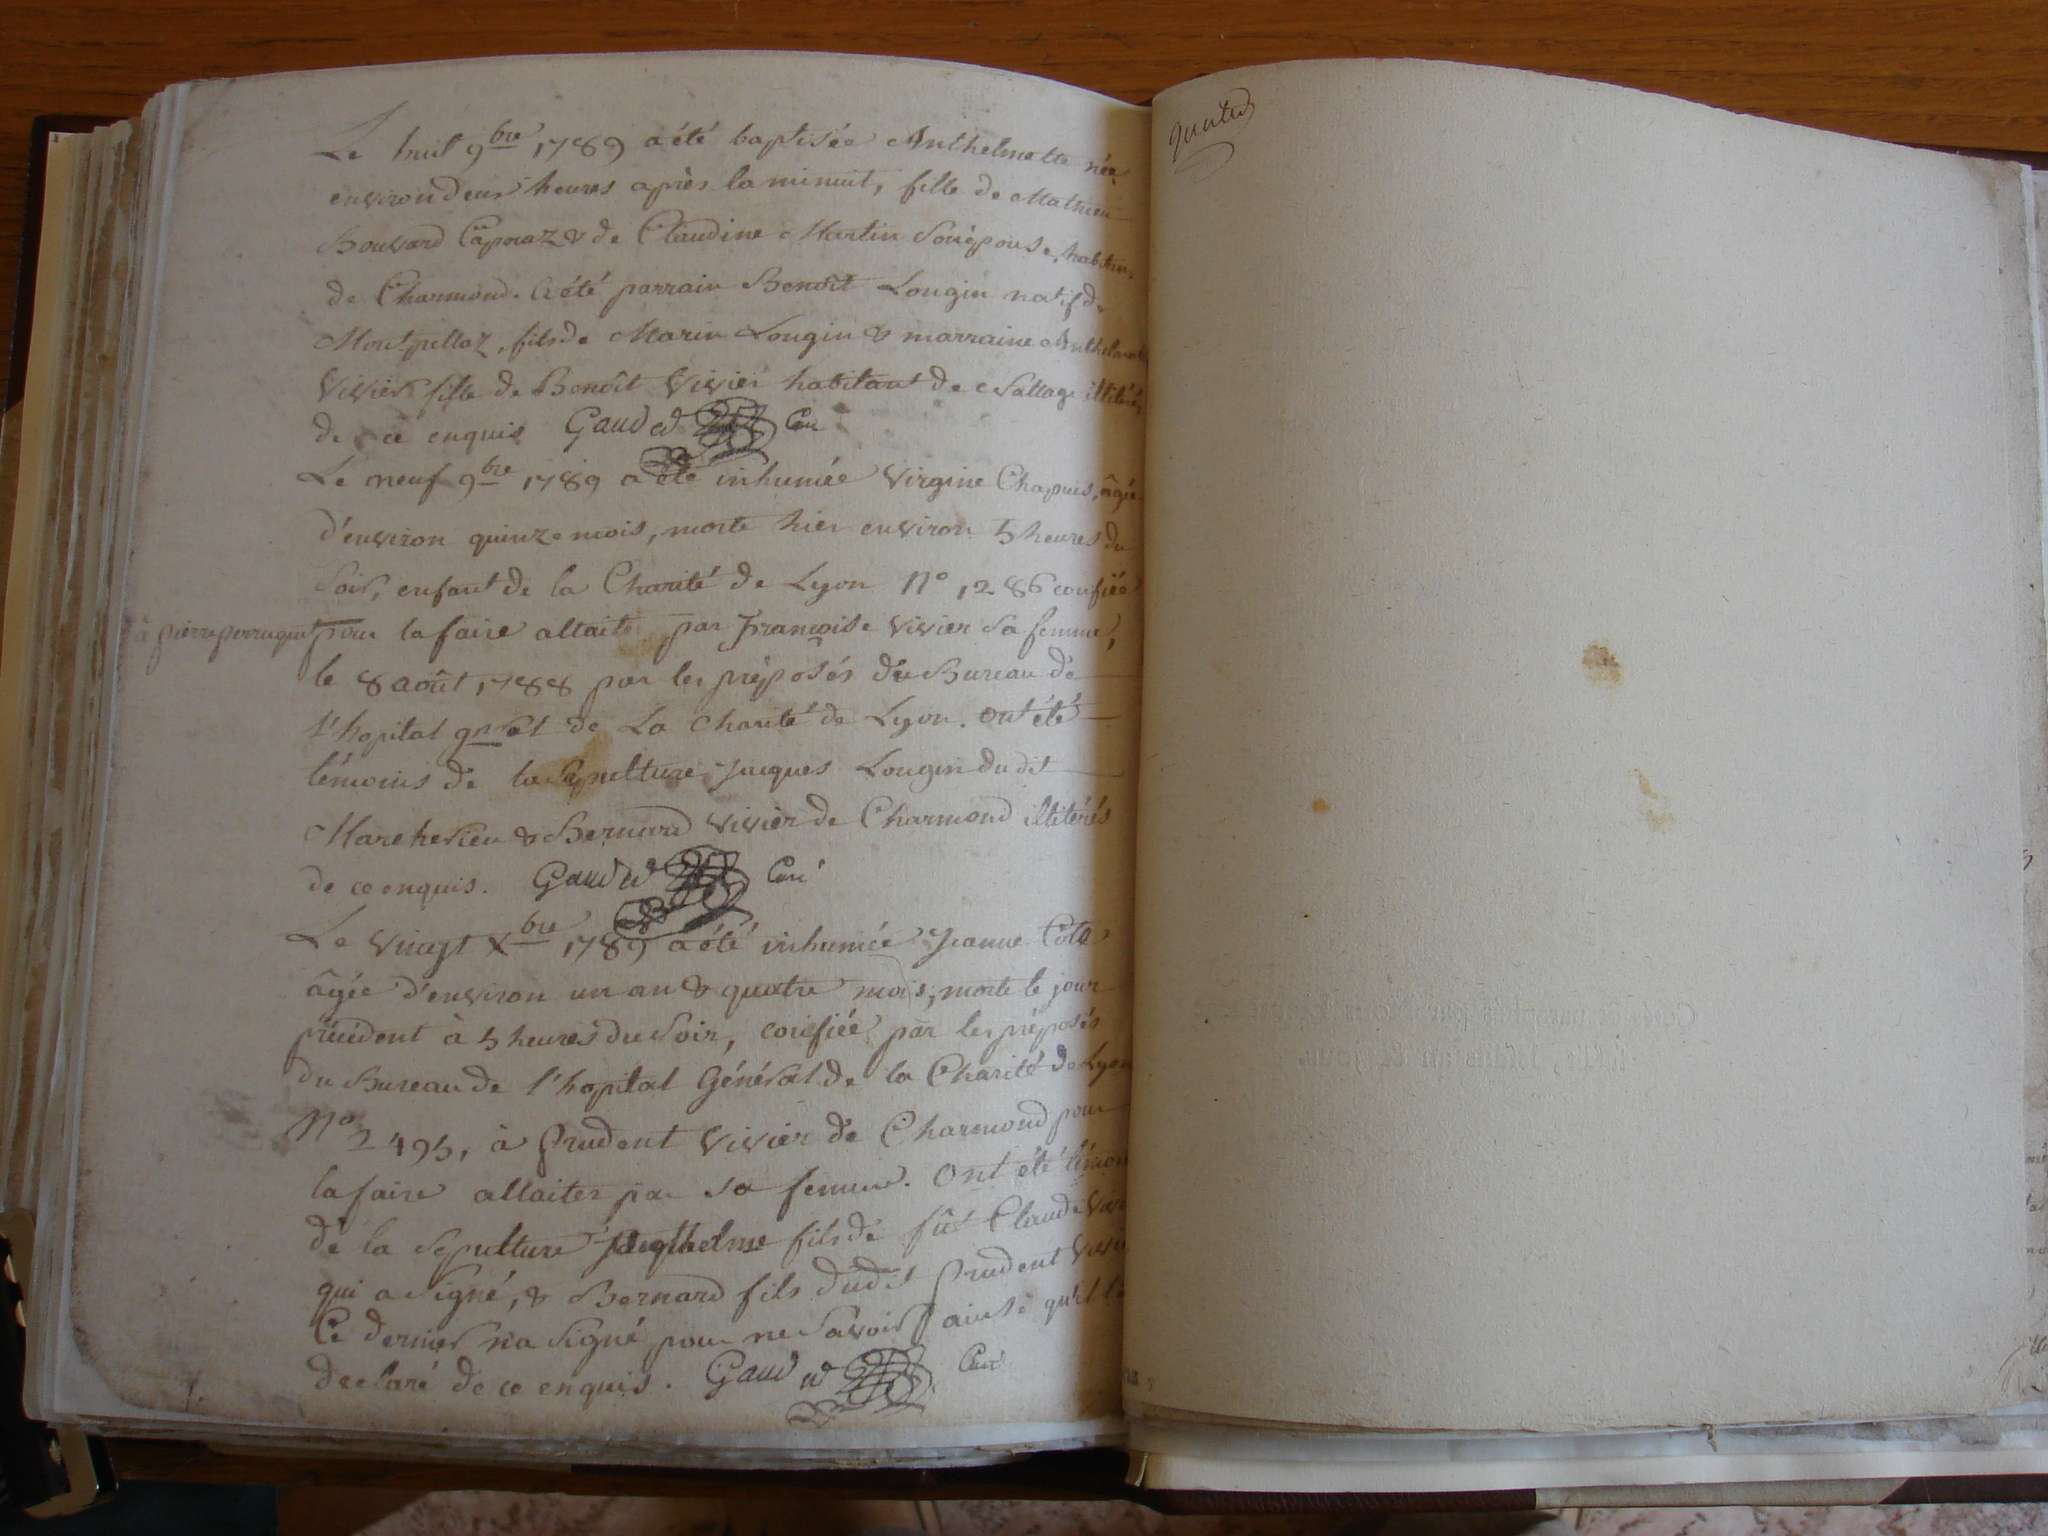 Le huit 9bre 1789 a été baptisée Anthelmette née
environ deux heures après la minuit, fille de Mathieu
Bouvard Caporaz & de Claudine Martin son épouse, habitans
de Charmond. A été parrain Benoît Lougin natif de
Montpellaz, fils de Marin Lougin & marraine Anthelmette
Vivier fille de Benoît Vivier habitant de illitérés
de ce enquis Gaudet Curé
Le neuf 9bre 1789 a été inhumée Virgine Chapuis, âgée
d'environ quinze mois, morte hier environ 5 heures du
soir, enfant de la Charité de Lyon No 1286 confiée
à pierre perruquet pour la faire allaiter par Françoise Vivier sa femme,
le 8 août 1788 par les préposés du Bureau de
l'hopital gnral de La Charité de Lyon. ont été
témoins de la sepulture Jacques Lougin du dit
Marcherieu & Bernard Vivier de Charmond illitérés
de ce enquis. Gaudet Curé
Le vingt Xbre 1789 a été inhumée Jeanne
âgée d'environ un an & quatre mois, morte le jour
précédent à 5 heures du soir, confiée par les préposés
du Bureau de l'hopital Général de la Charité de Lyon
No 2495, à Prudent Vivier de Charmond pour
la faire allaiter par sa femme. Ont été témoins
de la sepulture Anthelme fils de fût Claude
qui a signé, & Bernard fils dudit Prudent Vivier
Ce dernier n'a signé pour ne savoir ainsi qu'il l'a
declaré de ce enquis. Gaudet Curé